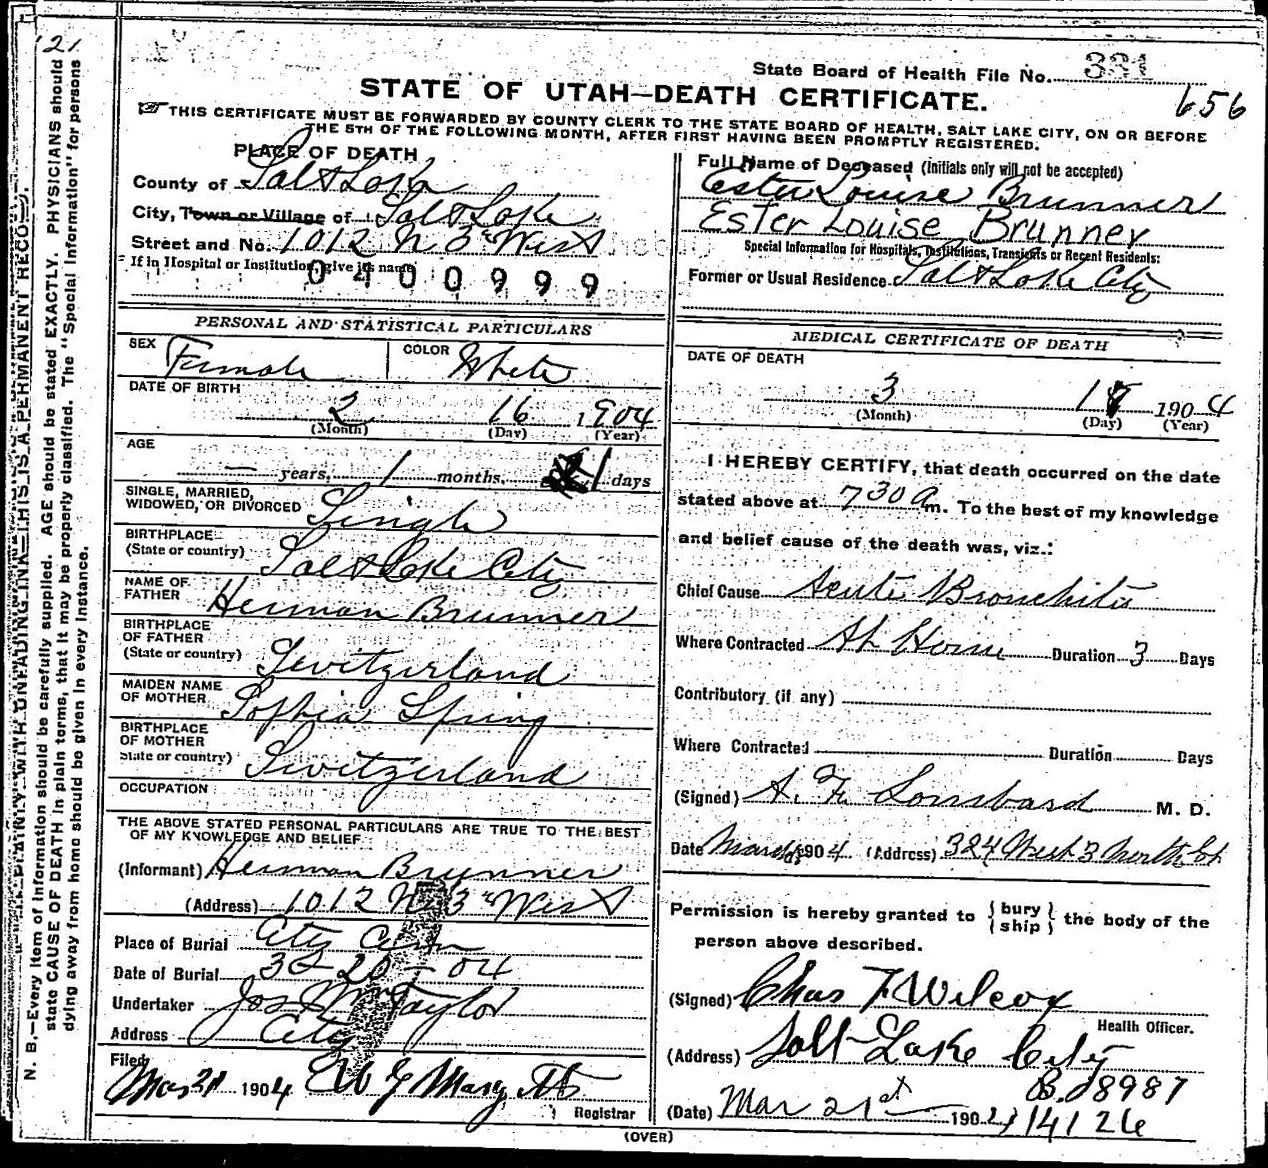 121
N. B.—Every item of information should be carefully supplied. AGE should be stated EXACTLY. PHYSICIANS should
state CAUSE OF DEATH in plain terms, that it may be properly classified. The "Special Information" for persons
dying away from home should be given in every instance.
State Board of Health File No. 331
656
STATE OF UTAH—DEATH CERTIFICATE.
THIS CERTIFICATE MUST BE FORWARDED BY COUNTY CLERK TO THE STATE BOARD OF HEALTH, SALT LAKE CITY, ON OR BEFORE
THE 5TH OF THE FOLLOWING MONTH, AFTER FIRST HAVING BEEN PROMPTLY REGISTERED.
PLACE OF DEATH
County of Salt Lake
City, Town or Village of Salt Lake
Street and No. 1012 N 3rd West
If in Hospital or Institution, give its name
0400999
PERSONAL AND STATISTICAL PARTICULARS
SEX Female COLOR White
DATE OF BIRTH
2 16 1904
(Month) (Day) (Year)
AGE
— years, 1 months, 1 days
SINGLE, MARRIED,
WIDOWED, OR DIVORCED Single
BIRTHPLACE
(State or country) Salt Lake City
NAME OF
FATHER Herman Brunner
BIRTHPLACE
OF FATHER
(State or country) Switzerland
MAIDEN NAME
OF MOTHER Sophia Spring
BIRTHPLACE
OF MOTHER
State or country) Switzerland
OCCUPATION
THE ABOVE STATED PERSONAL PARTICULARS ARE TRUE TO THE BEST
OF MY KNOWLEDGE AND BELIEF
(Informant) Herman Brunner
(Address) 1012 N 3rd West
Place of Burial City Cem
Date of Burial 3-20-04
Undertaker Jos Wm Taylor
Address City
Filed Mar 21 1904
Registrar
Full Name of Deceased (Initials only will not be accepted)
Ester Louise Brunner
Ester Louise Brunner
Special Information for Hospitals, Institutions, Transients or Recent Residents:
Former or Usual Residence Salt Lake City
MEDICAL CERTIFICATE OF DEATH
DATE OF DEATH
3 1904
(Month) (Day) (Year)
I HEREBY CERTIFY, that death occurred on the date
stated above at 7 30 a m. To the best of my knowledge
and belief cause of the death was, viz.:
Chief Cause Acute Bronchitis
Where Contracted At Home Duration 3 Days
Contributory (if any)
Where Contracted Duration Days
(Signed) A. F. Lombard M. D.
Date March 1904 (Address) 324 West 3 North St
Permission is hereby granted to { bury / ship } the body of the
person above described.
(Signed) Chas F Wilcox
Health Officer.
(Address) Salt Lake City
B. 18987
(Date) Mar 21st 190
14126
(OVER)